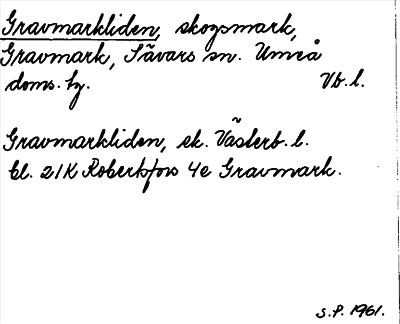 Gravmarkliden, skogsmark,
Gravmark, Sävars sn. Umeå
doms. hg. Vb. l.
Gravmarkliden, ek. Västerb. l.
bl. 21K Robertsfors 4e Gravmark.
S.P. 1961.